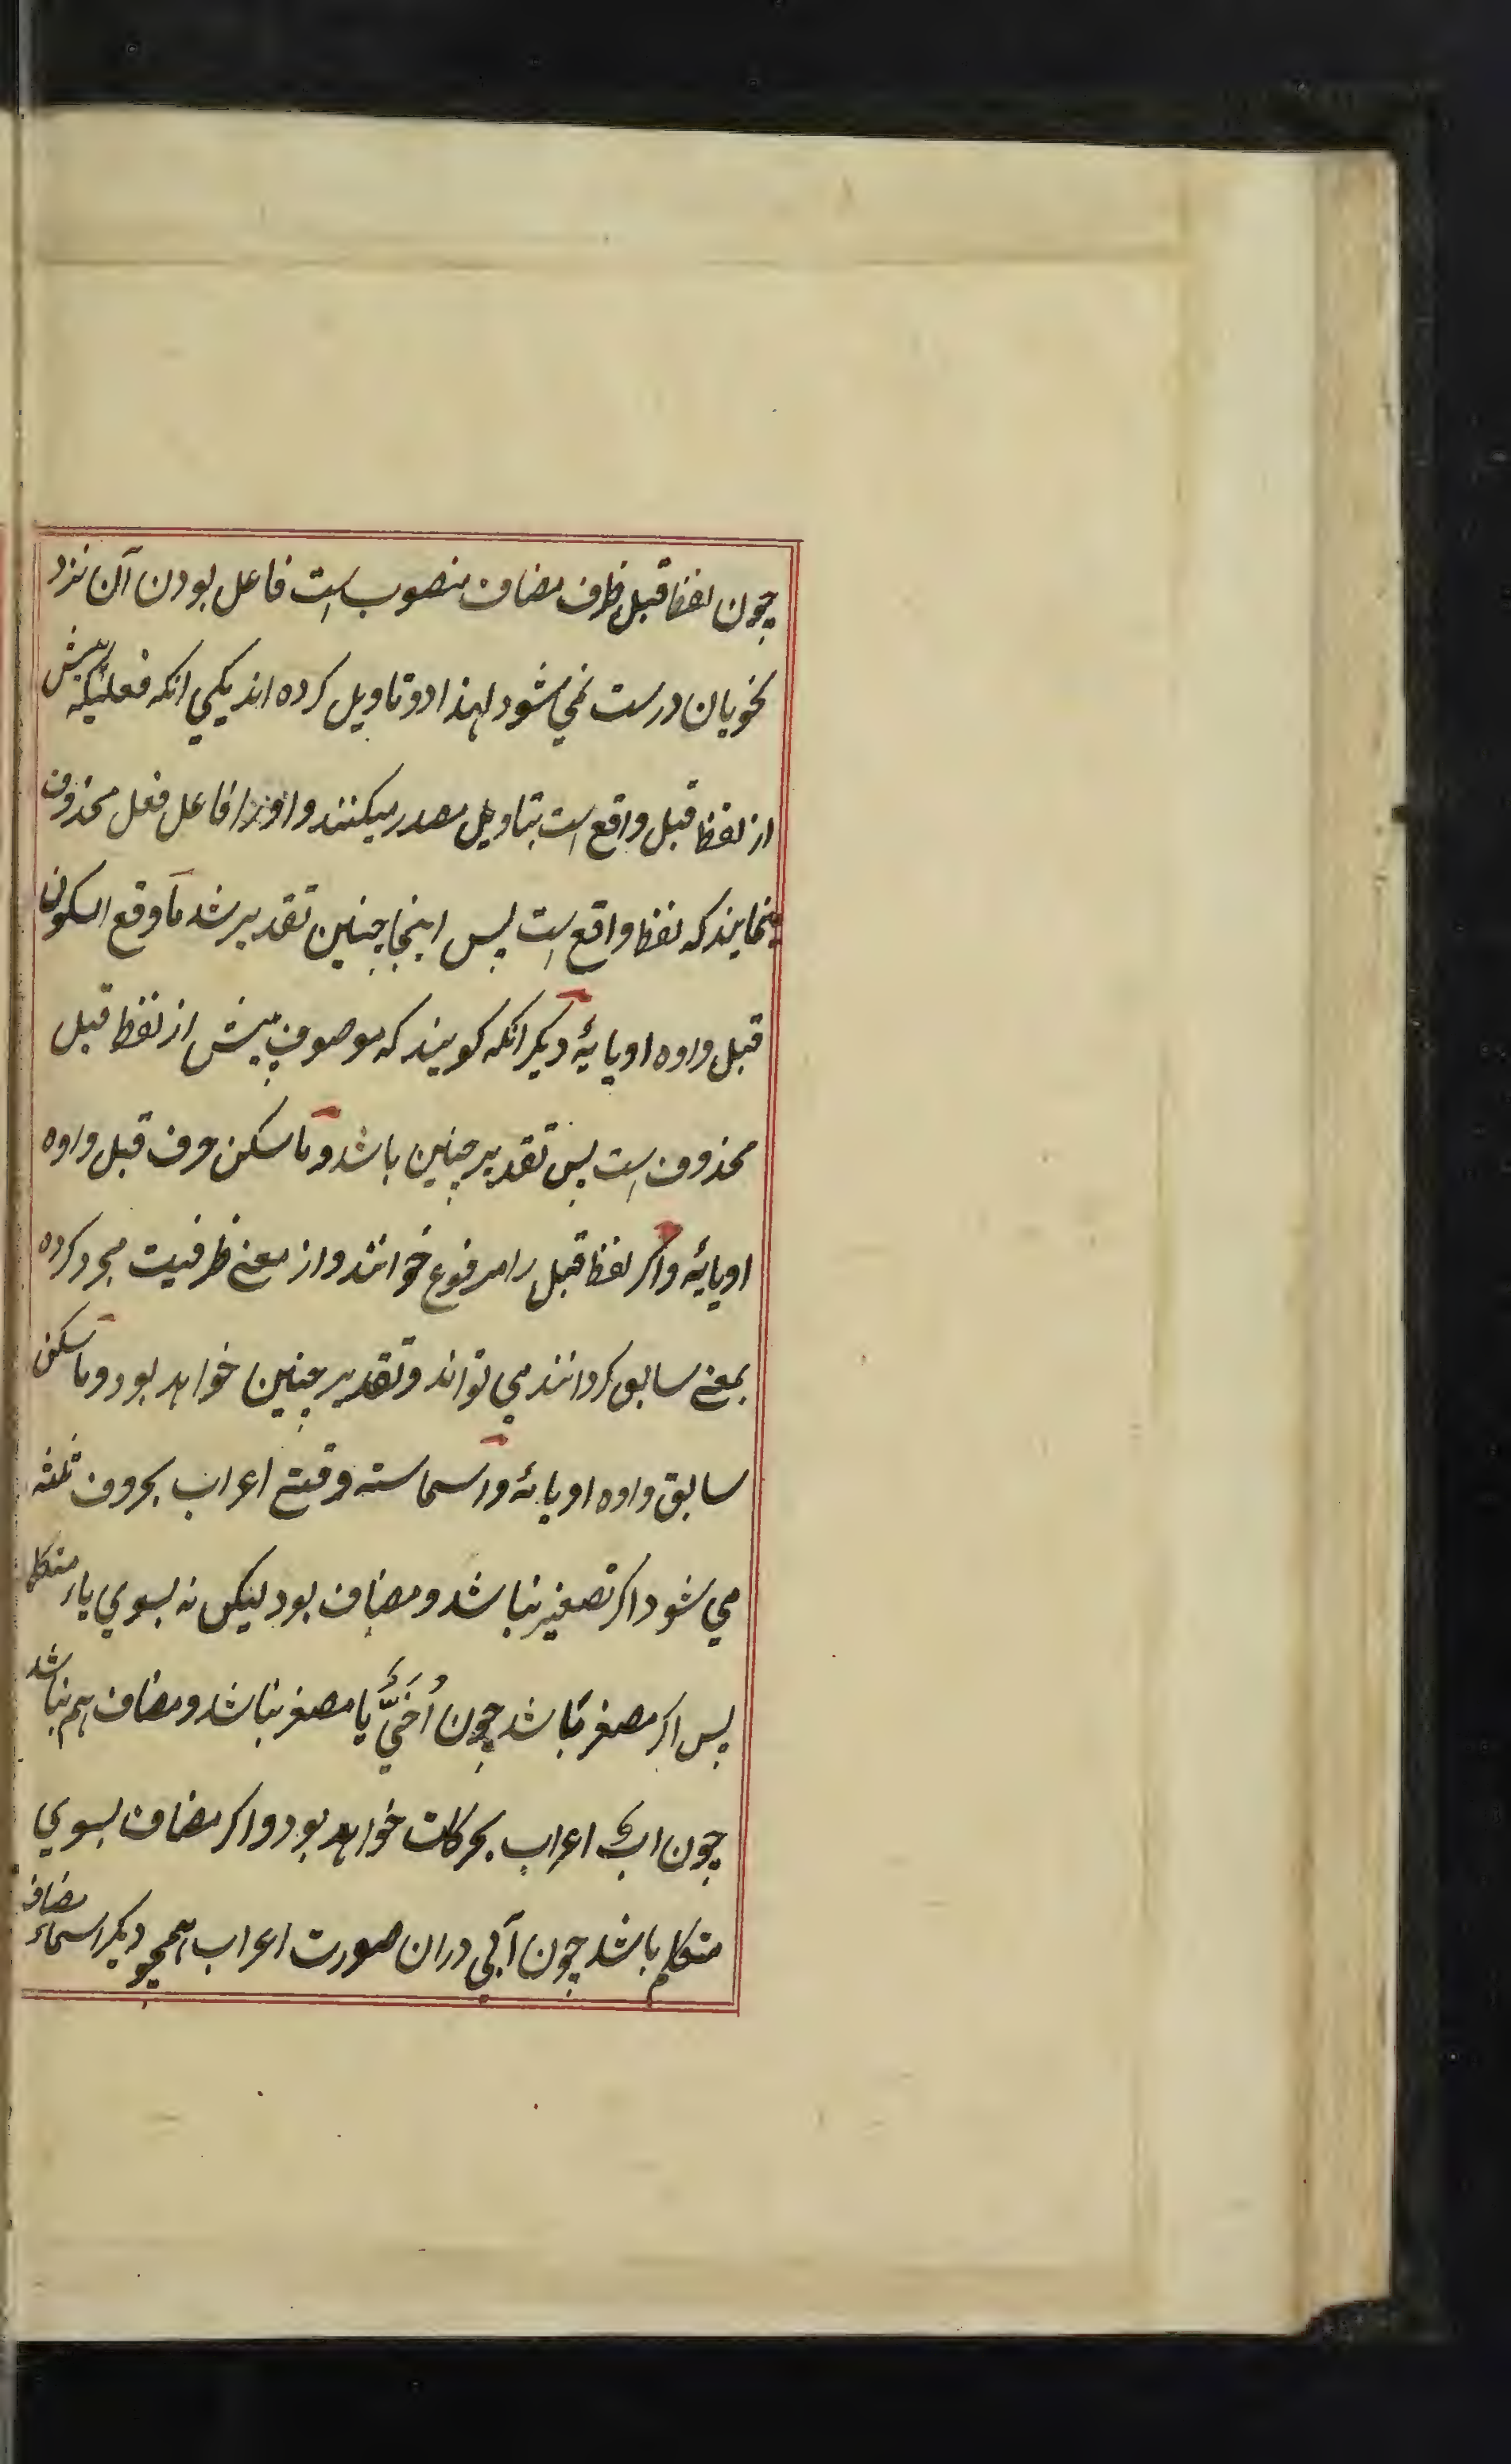 چون لفظ قبل ظرف مضاف منصوب است فاعل بودن آن نزد
نحویان درست نمی شود لهذا دو تاویل کرده اند یکی انکه فعلیکه پیش
از لفظ قبل واقع است بتاویل مصدر میکنند و او را فاعل فعل محذوف
مینمایند که لفظ واقع است پس اینجا چنین تقدیر شد ما وقع السکون
قبل واوه او یایهٔ دیکر انکه کویند که موصوف پیش از لفظ قبل
محذوف است پس تقدیر چنین باشد و ما سکن حرف قبل واوه
او یایهٔ و اکر لفظ قبل را مرفوع خوانند و از معنی ظرفیت مجرد کرده
بمعنی سابق کردانند می تواند و تقدیر چنین خواهد بود و ما سکن
سابق واوه او یائهٔ و اسماسته وقتی اعراب بحروف ثلثه
می شود اکر تصغیر نباشد و مضاف بود لیکن نه بسوی یاء متکلم
پس اکر مصغر باشد چون اُخَیٌّ یا مصغر نباشد و مضاف هم نباشد
چون ابٌ اعراب بحرکات خواهد بود و اکر مضاف بسوی
متکلم باشد چون آبی دران صورت اعراب همچو دیکر اسماء مضاف